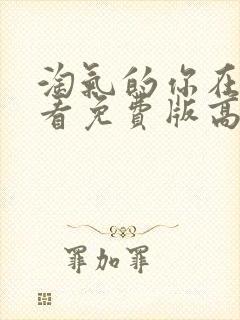 淘氣的你在
看免費版高
罪加罪